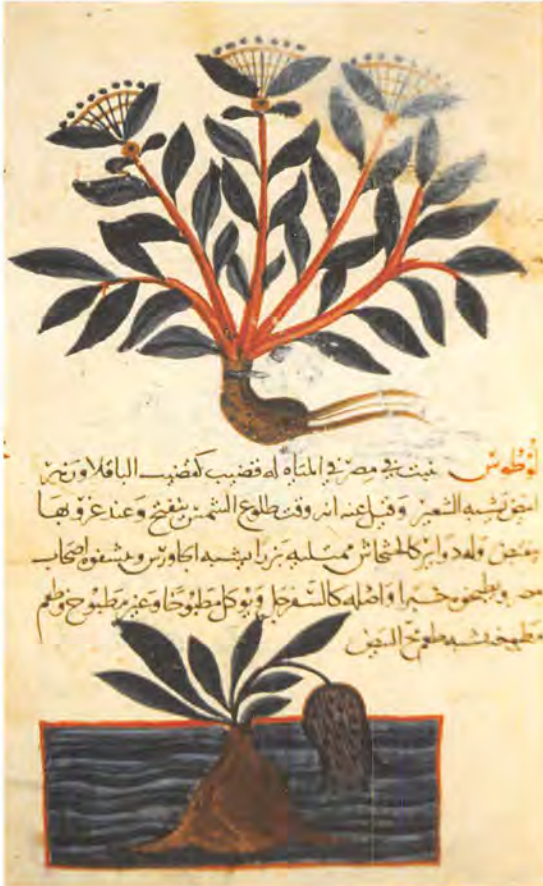 لوطوس ينبت في مصر في المياه له قضيب كقضيب الباقلا وزهر
ابيض يشبه وقيل عنه انه وقت طلوع الشمس ينفتح وعند غروبها
ينقبض وله دواير كالخشخاش ممتليه بزرا يشبه الجاورس ويشفوه اصحاب
مصر ويطبخوه خبزا واصله كالسفرجل ويوكل مطبوخا وغير مطبوخ وطعم
مطبوخه يشبه طعم مخ البيض